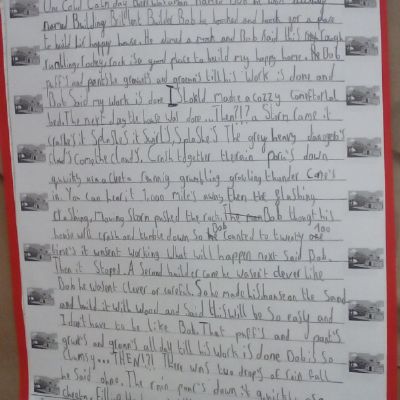 One Cold Calm day there was a man named Bob he was
named Building Brilliant Builder Bob he looked and looked for a place
to build his happy house. He a rock and Bob said this rough
rock is a good place to build my happy home. Bob
puff's and pants he growl's and groan's till his work is done and
Bob said my work is done I should made a cozzy comfortabl
bed. The next day the house was done... Then?!? a Storn came it
crackle's it Splashe's it Swirl's, Splashe's The grey heavy dangeros
cloud's come the cloud's. Crash together the rain down
runnig grumbling growling thunder came's
in. You can hear it 1,000 mile's away then the flashing
crashing, Moving Storn pashed the rock. The Bob though his
house will crash and tumble down So Bob counted to twenty 100
time's it wasent working what will happen next said Bob.
Then it Stoped A second builder came he wasen't clever like
Bob he wasent clever or careful. So he made his house on the Sand
and build it with wood and Said this will be So easy and
I don't have to be like Bob. That puff's and pant's
growl's and groan's all day till his work is done Bob is So
clumsy... THEN?!? There was two drops of rain fall
he Said ohne. The rain down it